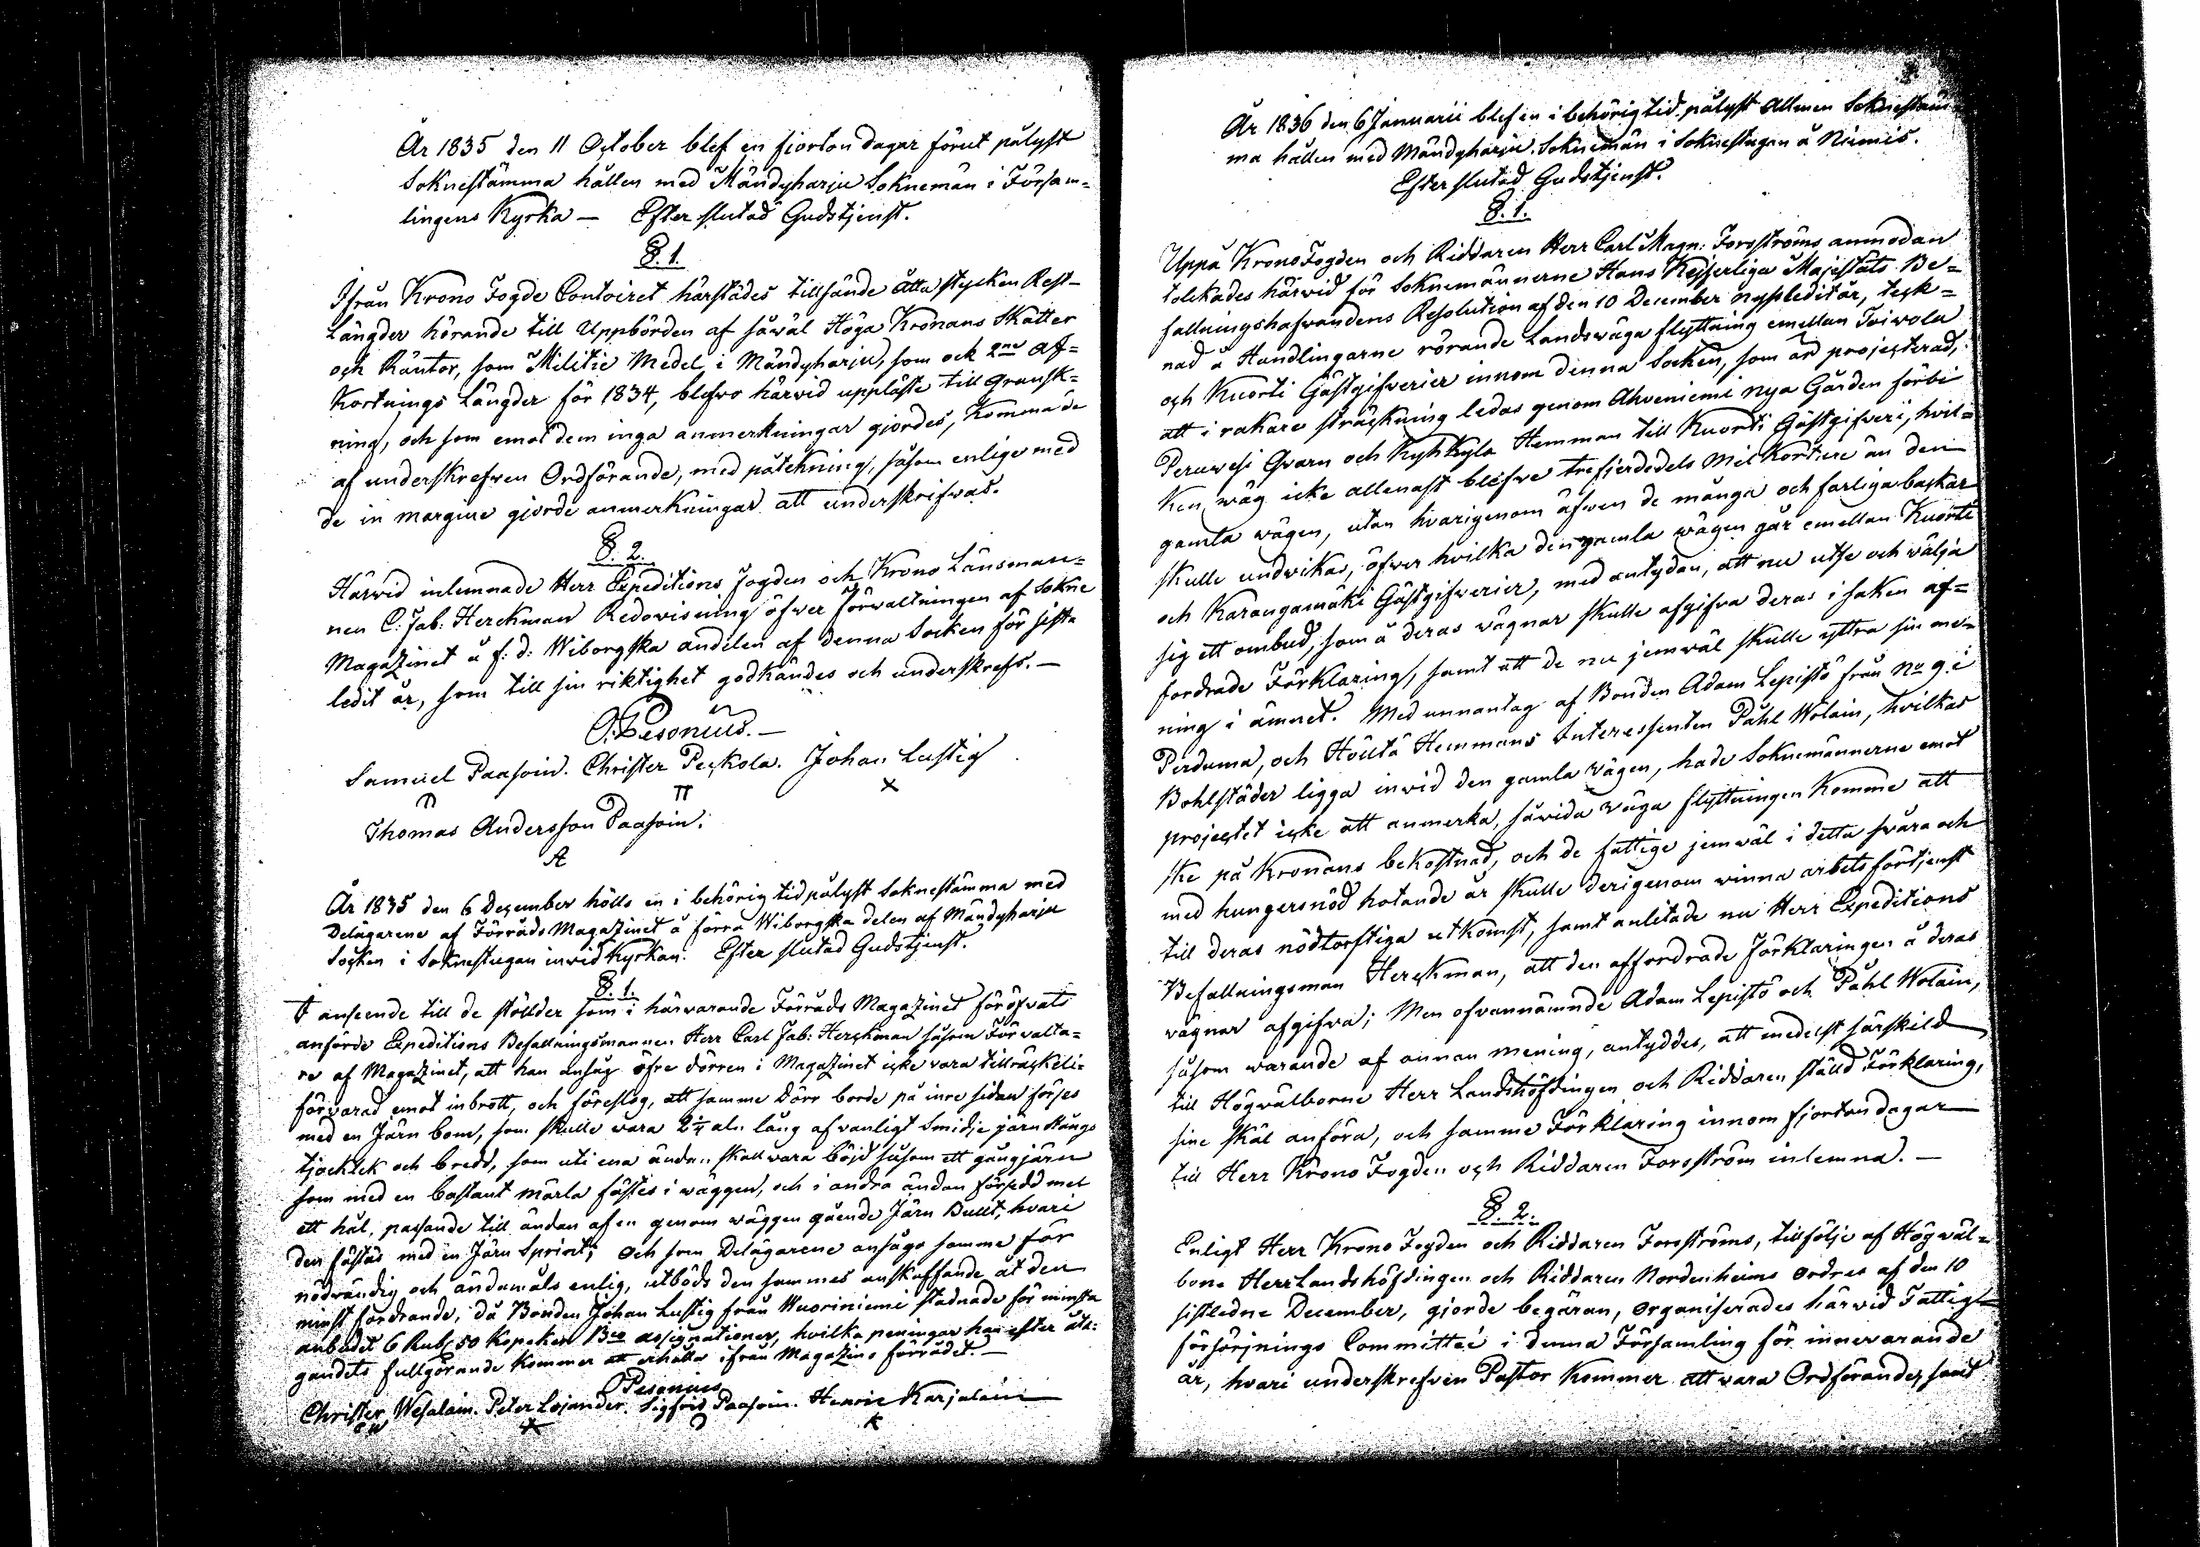 År 1835 den 11 October blef en fjorton dagar förut pålyst
Soknestämma hållen med Mändyharju Soknemän i Försam=
lingens Kyrka — Efter slutad Gudstjenst.
§. 1.
Ifrån Krono Fogde Contoiret härstädes tillsände åtta stycken Rest-
Längder hörande till Uppbörden af såwäl Höga Kronans Skatter
och Räntor, som Militie Medel i Mändyharju, som ock 2ne Af=
Kortnings Längder för 1834, blefwo härwid uppläste till gransk=
ning, och som emot dem inga anmerkningar gjordes, Komma de
af underskrefwen Ordförande, med påtekning, såsom enlige med
de in margine gjorde anmerkningar att underskrifwas.
§. 2.
Härwid inlemnade Herr Expeditions Fogden och Krono Länsman=
nen C. Jab: Herckman Redowisning öfwer förwaltningen af Sokne
Magazinet å f: d: Wiborgska andelen af denna Socken för sista
ledit år, som till sin riktighet godkändes och underskrefs. —
O. Pesonius. —
Samuel Paasoin. Christer Peckola. Johan Lustig
Thomas Andersson Paasoin.
A
År 1835 den 6 December hölls en i behörig tid pålyst Soknestämma med
Delägarene af Förråds Magazinet å förra Wiborgska delen af Mändyharju
Socken i Soknestugan inwid Kyrkan. Efter slutad Gudstjenst.
§. 1.
I anseende till de stöllder som i härwarande Förråds Magazinet föröfvats
anförde Expeditions Befallningsmannen Herr Carl Jab: Herckman såsom Förwalta=
re af Magazinet, att han ansåg öfre dörren i Magazinet icke vara tillräckeli=
förvarad emot inbrott, och föreslog, att samme Dörr borde på inre sidan förses
med en Järn bom, som skulle wara 2¼ aln lång af vanligt Smidje järn Stångs
tjocklek och bredd, som uti ena ändan skall vara böjd såsom ett gångjärn
som med en bastant märla fästes i wäggen, och i andra ändan försedd med
ett hål, passande till ändan af en genom wäggen gående Järn Bullt, hvari
den fästas med en Järn Sprint; och som Delägarene ansågo samme för
nödwändig och ändamåls enlig, utböds den sammes anskaffande åt den
minst fordrande, då Bonden Johan Lustig från Wuoriniemi stadnade för minsta
anbudet 6 Rub. 50 Kopeken Bco assignationer, hvilka penningar han efter åta:
gandets fullgörande Kommer att erhålla ifrån Magazins förrådet. —
O Pesonius
Christer Wesalain. Peter Lojander. Sigfrid Paasoin. Henric Karjalain
År 1836 den 6 Januarii blef en i behörig tid pålyst Allmen Soknestäm=
ma hållen med Mändyharju Soknemän i Soknestugan å Niemis.
Efter slutad Gudstjenst.
§. 1.
Uppå KronoFogden och Riddaren Herr Carl Magn: Forsströms anmodan
tolckades härwid för Soknemännerne Hans Kejserliga Majestäts Be=
fallningshafwandens Resolution af den 10 December nystleditår, teck=
nad å Handlingarne rörande Landswäga flyttning emellan Toiwola
och Kuorti Gästgifverier innom denna Socken, som är projecterad,
att i rakare sträckning ledas genom Ahweniemi nya Gården förbi
Peruwesi Qvarn och Kyhkylä Hemman till Kuorti Gästgifveri, hvil=
ken wäg icke allenast blefve trefjerdedels Mil Kortare än den
gamla wägen, utan hvarigenom äfwen de många och farliga backar
skulle undwikas, öfwer hvilka den gamla wägen går emellan Kuorti
och Karangamäki Gästgifverier, med antydan, att nu utse och wälja
sig ett ombud, som å deras wägnar skulle afgifva deras i saken af=
fordrade Förklaring, samt att de nu jemwäl skulle yttra sin me=
ning i ämnet. Med unnantag af Bonden Adam Lepistö från No 9. i
Perduma, och Höltä Hemmans Interessenten Påhl Wolain, hvilkas
Bohlstäder ligga inwid den gamla wägen, hade Soknemännerne emot
projectet icke att anmerka, såwida wäga flyttningen Komme att
ske på Kronans bekostnad, och de fattige jemwäl i detta swåra och
med hungersnöd hotande år skulle derigenom winna arbets förtjenst
till deras nödtorftiga utkomst, samt anlitade nu Herr Expeditions
Befallningsman Herckman, att den affordrade Förklaringen å deras
wägnar afgifva; Men ofvannämnde Adam Lepistö och Påhl Wolain,
såsom warande af annan mening, antyddes, att medelst särskild
till Högwälborne Herr Landshöfdingen och Riddaren ställd Förklaring,
sine skäl anföra, och samme Förklaring innom fjorton dagar
till Herr Krono Fogden och Riddaren Forsström inlemna. —
§. 2.
Enligt Herr Krono Fogden och Riddaren Forsströms, tillfölje af Högwäl=
borne Herr Landshöfdingen och Riddaren Nordenheims Ordres af den 10
sistledne December, gjorde begäran, organiserades härwid Fattig=
försörjnings Committeé i denna Församling för innevarande
år, hvari underskrefven Pastor Kommer att vara Ordförande, samt